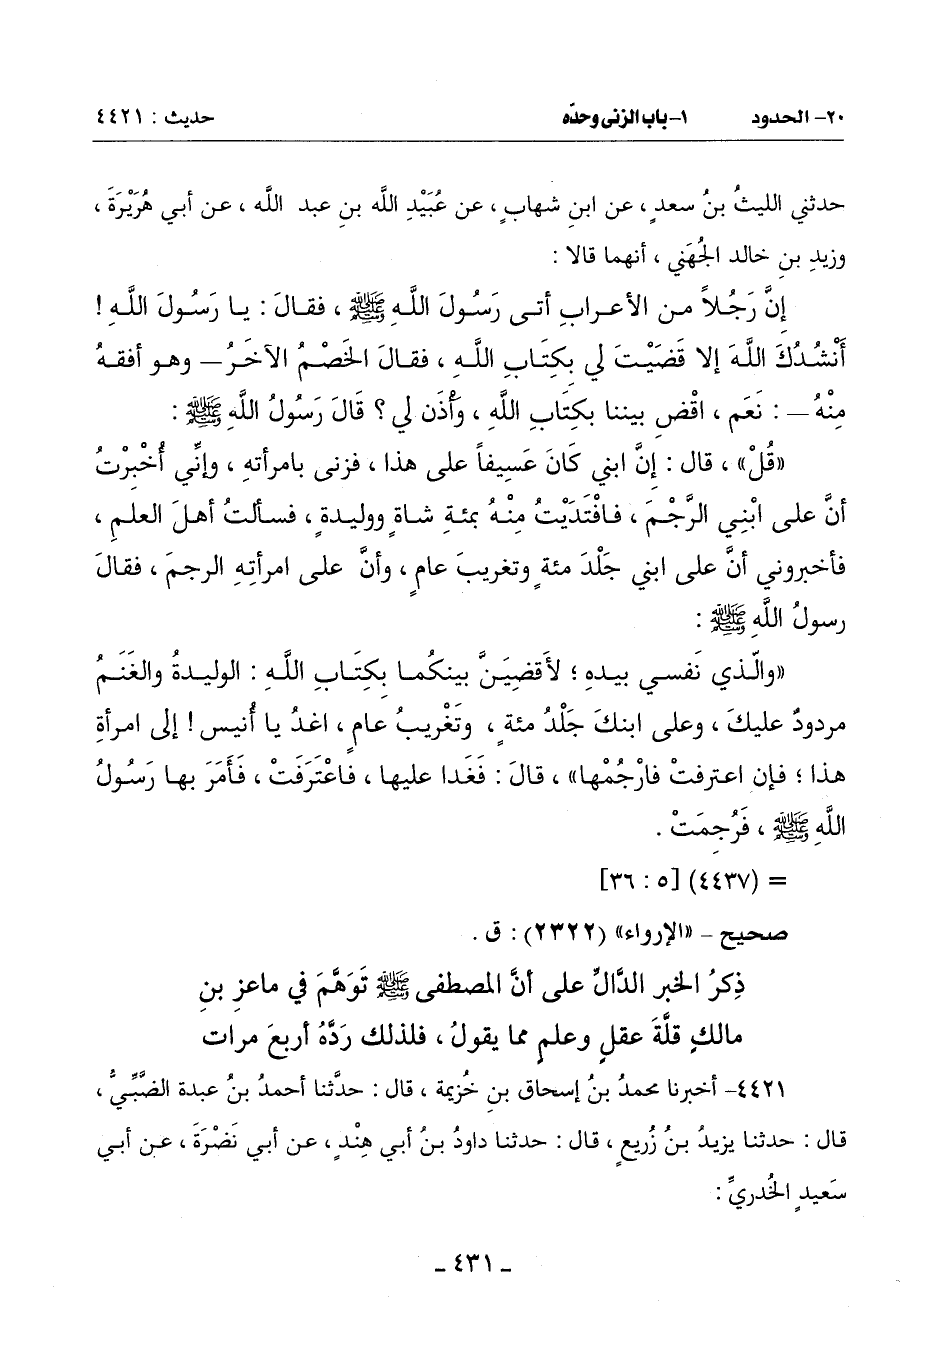 ٢٠- الحدود ١- باب الزنى وحدّه حديث : ٤٤٢١
حدثني الليثُ بنُ سعدٍ ، عن ابنِ شهابٍ ، عن عُبَيْدِ اللَّه بنِ عبد الله ، عن أبي هُرَيْرَةَ ،
وزيدِ بنِ خالد الجُهَني ، أنهما قالا :
إنَّ رَجُلاً من الأعرابِ أتى رَسُولَ اللَّهِ ﷺ ، فقالَ : يا رَسُولَ اللَّهِ !
أَنْشُدُكَ اللَّهَ إلا قَضَيْتَ لي بكِتَابِ اللَّهِ ، فقالَ الخَصْمُ الآخَرُ ــ وهو أفقهُ
مِنْهُ ــ : نَعَم ، اقْضِ بيننا بكِتَابِ اللَّهِ ، وَأْذَن لي ؟ قَالَ رَسُولُ اللَّهِ ﷺ :
«قُلْ» ، قال : إنَّ ابني كَانَ عَسِيفاً على هذا ، فزنى بامرأتهِ ، وإنِّي أُخْبِرْتُ
أنَّ على ابْنِي الرَّجْمَ ، فافْتَدَيْتُ مِنْهُ بمئةِ شاةٍ ووليدةٍ ، فسألتُ أهلَ العلمِ ،
فأخبروني أنَّ على ابني جَلْدَ مئةٍ وتغريبَ عامٍ ، وأنَّ على امرأتِهِ الرجمَ ، فقالَ
رسولُ اللَّهِ ﷺ :
«والّذي نَفسي بيدهِ ؛ لأَقضِيَنَّ بينكُما بكِتَابِ اللهِ : الوليدةُ والغَنَمُ
مردودٌ عليكَ ، وعلى ابنكَ جَلْدُ مئةٍ ، وتَغْرِيبُ عامٍ ، اغدُ يا أُنَيس ! إلى امرأةِ
هذا ؛ فإن اعترفتْ فارْجُمْها» ، قالَ : فَغَدا عليها ، فاعْتَرَفَتْ ، فَأَمَرَ بها رَسُولُ
اللَّهِ ﷺ ، فَرُجِمَتْ .
= (٤٤٣٧) [٥ : ٣٦]
صحيح - «الإرواء» (٢٣٢٢) : ق .
ذِكرُ الخبر الدَّالِّ على أنَّ المصطفى ﷺ تَوَهَّمَ في ماعزِ بنِ
مالكٍ قلَّةَ عقلٍ وعلمٍ مما يقولُ ، فلذلك رَدَّهُ أربعَ مرات
٤٤٢١- أخبرنا محمدُ بنُ إسحاق بنِ خُزيمة ، قال : حدَّثنا أحمدُ بنُ عبدة الضَّبِّيُّ ،
قال : حدثنا يزيدُ بنُ زُريعٍ ، قال : حدثنا داودُ بنُ أبي هِنْدٍ ، عن أبي نَضْرَةَ ، عن أبي
سَعيدٍ الخُدريِّ :
ـ ٤٣١ ـ